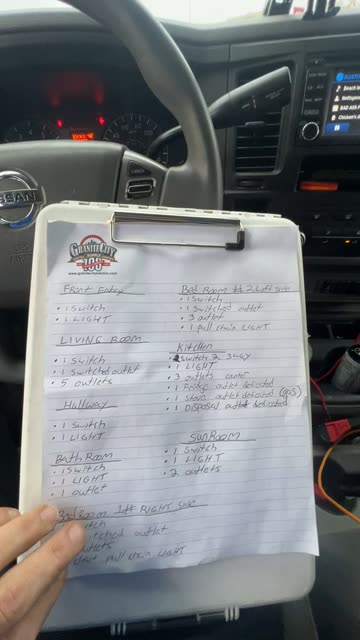 GRANITE CITY
SUPPLY
100
Front Entry
• 1 Switch
• 1 LIGHT
LIVING ROOM
• 1 Switch
• 1 Switched outlet
• 5 outlets
Hallway
• 1 Switch
• 1 LIGHT
Bath Room
• 1 Switch
• 1 LIGHT
• 1 outlet
Bed Room 1# RIGHT Side
outlet
outlets
pull chain LIGHT
Bed Room #2 Left side
• 1 Switch
• 1 Switched outlet
• 3 outlet
• 1 pull chain LIGHT
Kitchen
• 2 Switch 2 3-way
• 1 LIGHT
• 3 outlets counter
• 1 Fridge outlet dedicated
• 1 Stove outlet dedicated (gas)
• 1 Disposal outlet dedicated
SunRoom
• 1 Switch
• 1 LIGHT
• 2 outlets
NISSAN